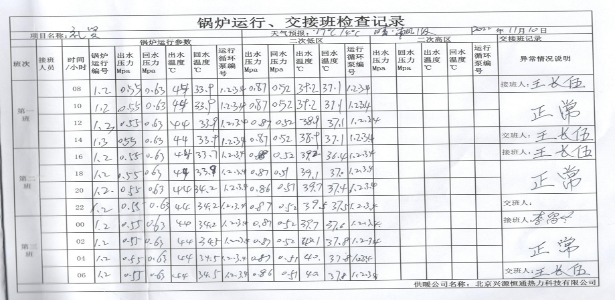 锅炉运行、交接班检查记录
项目名称: 天气预报: 17℃/4℃ 11月10日
班次 接班人员 时间/小时 锅炉运行参数 二次低区 二次高区 交接班记录
锅炉运行编号 出水压力Mpa 回水压力Mpa 出水温度℃ 回水温度℃ 运行循环泵编号 出水压力Mpa 回水压力Mpa 出水温度℃ 回水温度℃ 运行循环泵编号 出水压力Mpa 回水压力Mpa 出水温度℃ 回水温度℃ 运行循环泵编号 异常情况说明
第一班
08 1.2 0.55 0.63 44 33.9 1.2.3.4 0.87 0.52 39.2 37.1 1.2.3.4 接班人: 王长伍
10 1.2 0.55 0.63 44 33.9 1.2.3.4 0.87 0.52 39.2 37.1 1.2.3.4 正常
12 1.2 0.55 0.63 44 33.9 1.2.3.4 0.87 0.52 38.9 37.1 1.2.3.4
14 1.2 0.55 0.63 44 33.9 1.2.3.4 0.87 0.52 38.9 37.1 1.2.3.4 交班人: 王长伍
第二班
16 1.2 0.55 0.63 44 33.7 1.2.3.4 0.52 39.2 36.4 1.2.3.4 接班人: 王长伍
18 1.2 0.55 0.63 44 33.9 1.2.3.4 0.87 0.51 39.1 37.0 1.2.3.4 正常
20 1.2 0.55 0.63 44 34.2 1.2.3.4 0.86 0.51 39.7 37.4 1.2.3.4
22 1.2 0.55 0.63 44 34.2 1.2.3.4 0.87 0.52 39.8 37.5 1.2.3.4 交班人:
第三班
00 1.2 0.55 0.63 44 34.2 1.2.3.4 0.87 0.52 39.7 37.6 1.2.3.4 接班人:
02 1.2 0.55 0.63 44 34.5 1.2.3.4 0.87 0.52 40.1 37.8 1.2.3.4 正常
04 1.2 0.55 0.63 44 34.5 1.2.3.4 0.87 0.51 40. 37.8 1.2.3.4
06 1.2 0.55 0.63 44 34.5 1.2.3.4 0.86 0.51 40. 37.8 1.2.3.4 交班人: 王长伍
供暖公司名称: 北京兴源恒通热力科技有限公司